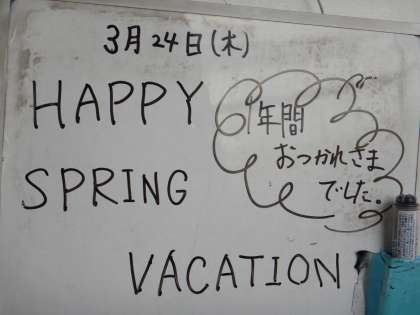 3月24日(木)
HAPPY
SPRING
VACATION
1年間
おつかれさま
でした。